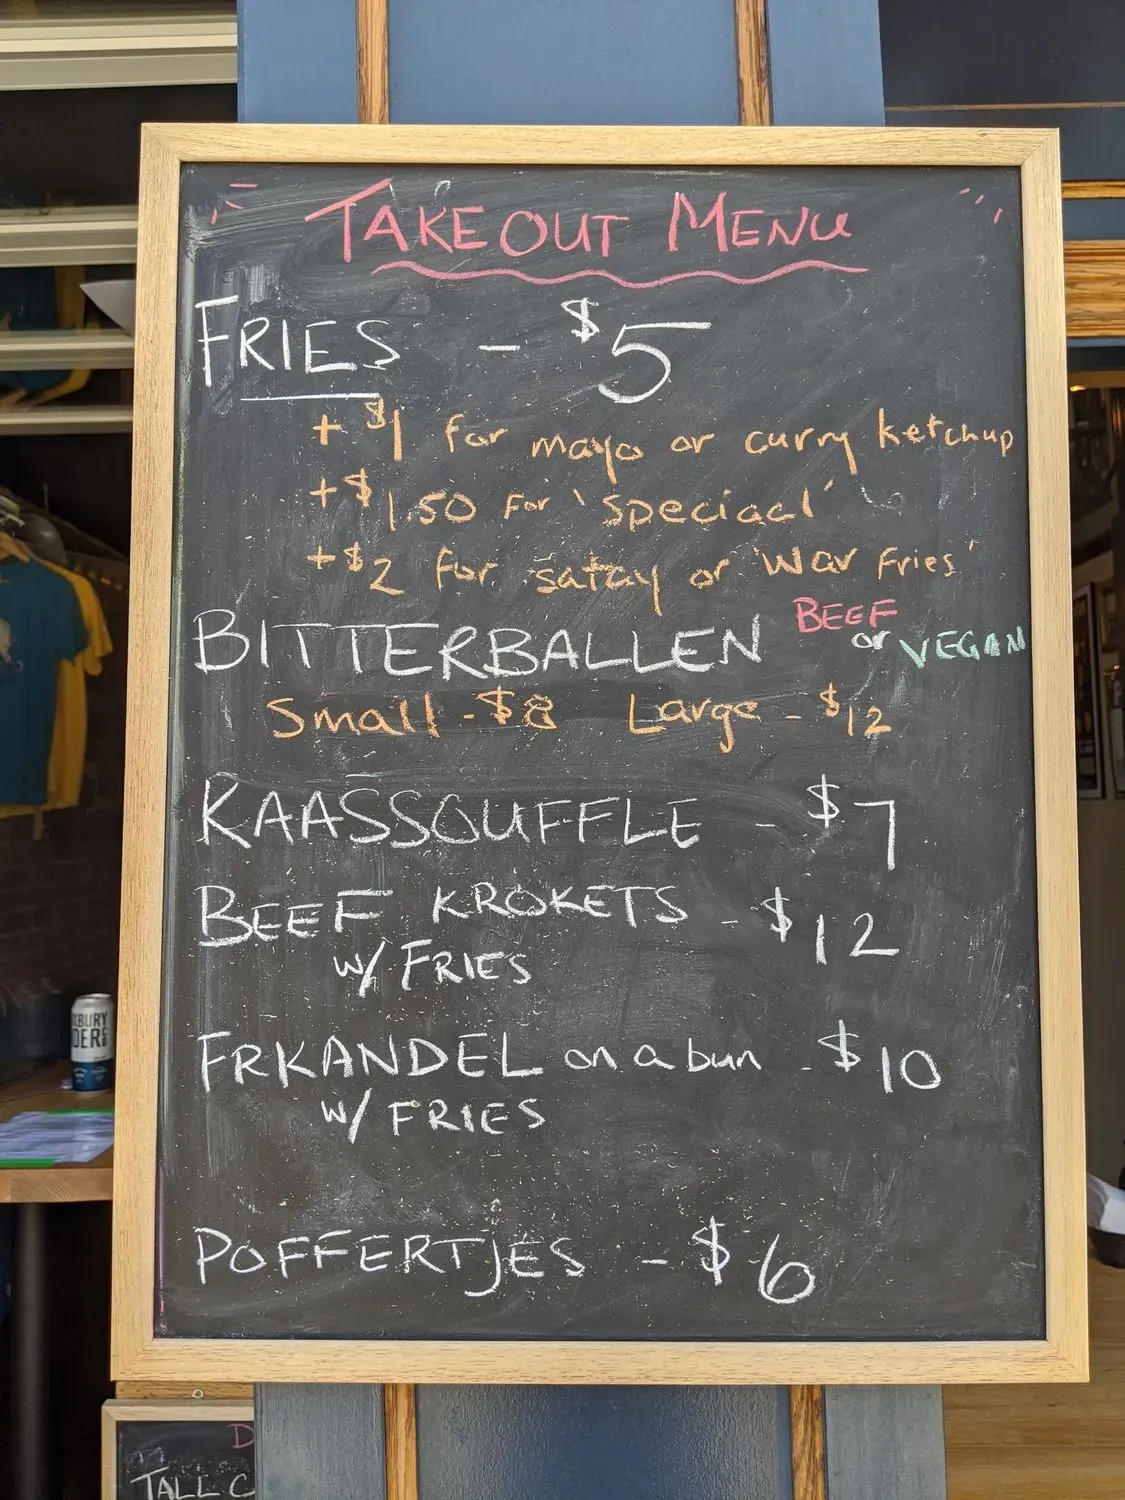 TAKEOUT MENU
FRIES - $5
+ $1 for mayo or curry ketchup
+ $1.50 FOR 'speciaal'
+ $2 for satay or 'War Fries'
BITTERBALLEN BEEF or VEGAN
Small - $8 Large - $12
KAASSOUFFLE - $7
BEEF KROKETS - $12
w/ FRIES
FRKANDEL on a bun - $10
w/ FRIES
POFFERTJES - $6
TALL C